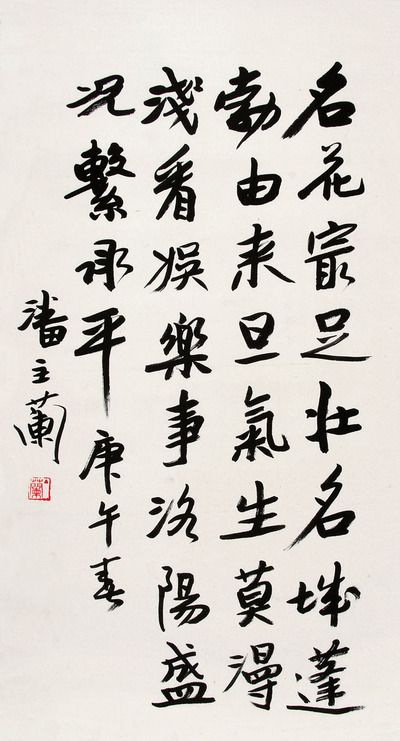 名花㝡足壯名城蓬
勃由来旦氣生莫漫
淺看娛樂事洛陽盛
况繫承平庚午春
潘主蘭